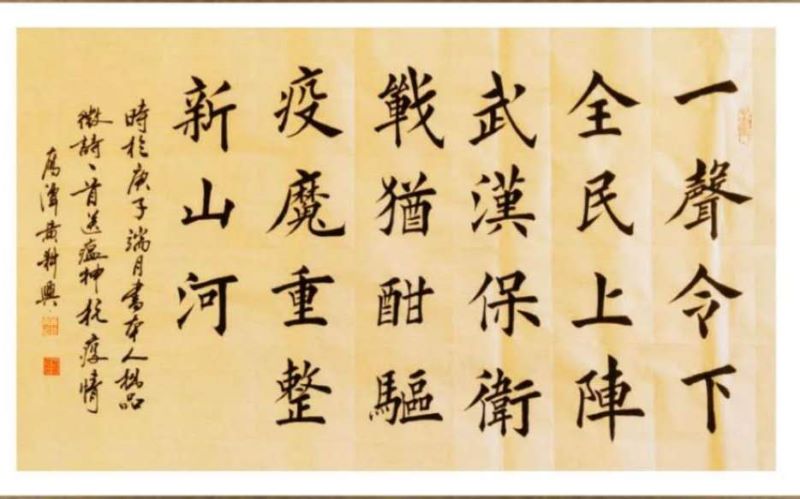 一聲令下
全民上陣
武漢保衛
戰猶酣驅
疫魔重整
新山河
時於庚子端月書本人拙品
微詩一首送瘟神抗疫情
鹰潭黄科興